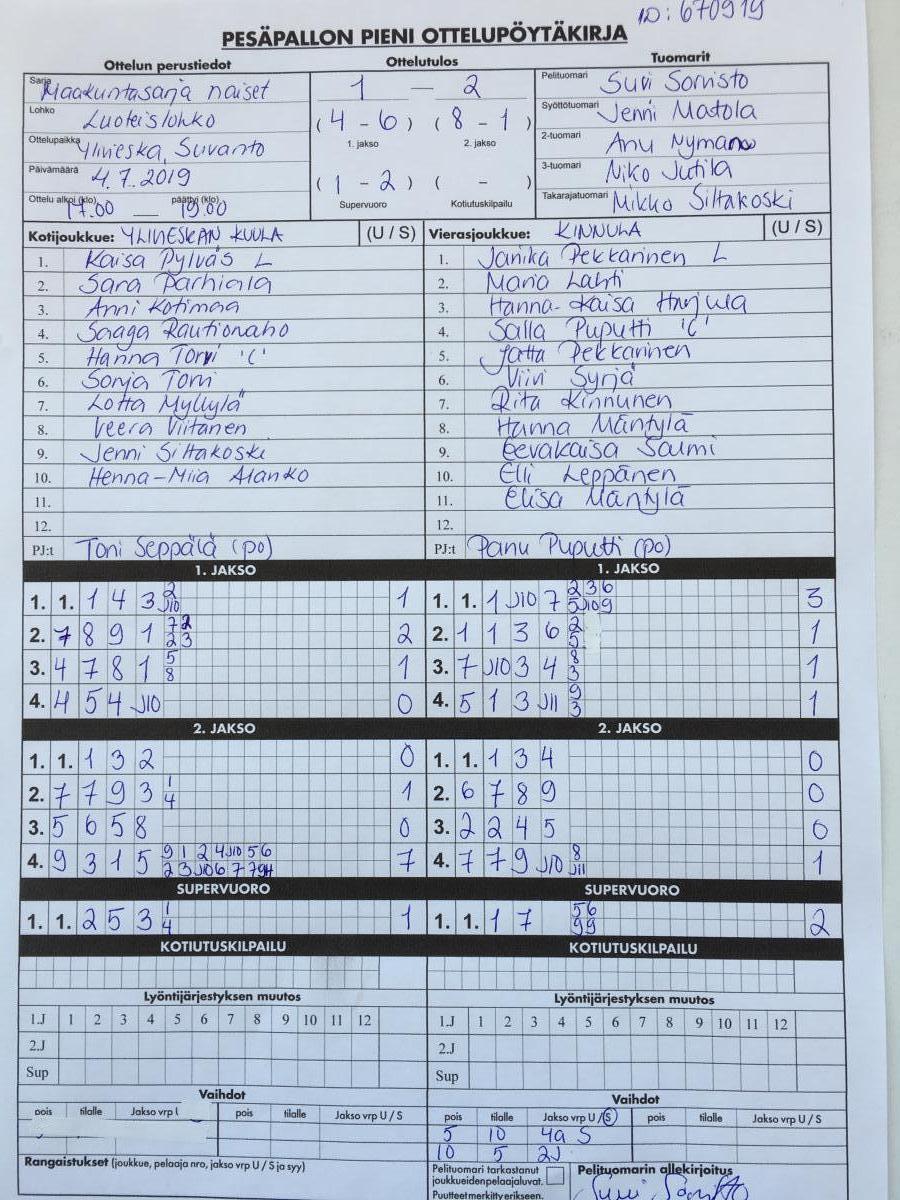 ID: 670919
PESÄPALLON PIENI OTTELUPÖYTÄKIRJA
Ottelun perustiedot
Ottelutulos
Tuomarit
Sarja Maakuntasarja naiset
Lohko Luoteislohko
Ottelupaikka Ylivieska, Suvanto
Päivämäärä 4.7.2019
Ottelu alkoi (klo) 17.00 — päättyi (klo) 19.00
1 — 2
(4 - 6) (8 - 1)
1. jakso 2. jakso
(1 - 2) ( - )
Supervuoro Kotiutuskilpailu
Pelituomari Suvi Sorvisto
Syöttötuomari Jenni Matola
2-tuomari Anu Nyman
3-tuomari Niko Jutila
Takarajatuomari Mikko Siltakoski
Kotijoukkue: YLIVIESKAN KUULA (U / S)
1. Kaisa Pylväs L
2. Sara Parhiala
3. Anni Kotimaa
4. Saaga Rautionaho
5. Hanna Torvi 'C'
6. Sonja Torvi
7. Lotta Myllylä
8. Veera Viitanen
9. Jenni Siltakoski
10. Henna-Miia Alanko
11.
12.
PJ:t Toni Seppälä (po)
Vierasjoukkue: KINNULA (U / S)
1. Janika Pekkarinen L
2. Maria Lahti
3. Hanna-Kaisa Harjula
4. Salla Puputti 'C'
5. Jatta Pekkarinen
6. Viivi Syrjä
7. Rita Kinnunen
8. Hanna Mäntylä
9. Eevakaisa Salmi
10. Elli Leppänen
11. Elisa Mäntylä
12.
PJ:t Panu Puputti (po)
1. JAKSO
1. 1. 1 4 3 2 J10 1
2. 7 8 9 1 72 23 2
3. 4 7 8 1 5 8 1
4. 4 5 4 J10 0
1. JAKSO
1. 1. 1 J10 7 2 3 6 5 J10 9 3
2. 1 1 3 6 2 5 1
3. 7 J10 3 4 8 3 1
4. 5 1 3 J11 9 3 1
2. JAKSO
1. 1. 1 3 2 0
2. 7 7 9 3 1 4 1
3. 5 6 5 8 0
4. 9 3 1 5 9 1 2 4 J10 5 6 2 3 J10 6 7 7 9 7
2. JAKSO
1. 1. 1 3 4 0
2. 6 7 8 9 0
3. 2 2 4 5 0
4. 7 7 9 J10 8 J11 1
SUPERVUORO
1. 1. 2 5 3 1 4 1
SUPERVUORO
1. 1. 1 7 56 99 2
KOTIUTUSKILPAILU
KOTIUTUSKILPAILU
Lyöntijärjestyksen muutos
1.J 1 2 3 4 5 6 7 8 9 10 11 12
2.J
Sup
Lyöntijärjestyksen muutos
1.J 1 2 3 4 5 6 7 8 9 10 11 12
2.J
Sup
Vaihdot
pois tilalle Jakso vrp U pois tilalle Jakso vrp U / S
Vaihdot
pois tilalle Jakso vrp U / S pois tilalle Jakso vrp U / S
5 10 4a S
10 5 2J
Rangaistukset (joukkue, pelaaja nro, jakso vrp U / S ja syy)
Pelituomari tarkastanut
joukkueidenpelaajaluvat.
Puutteet merkitty erikseen.
Pelituomarin allekirjoitus